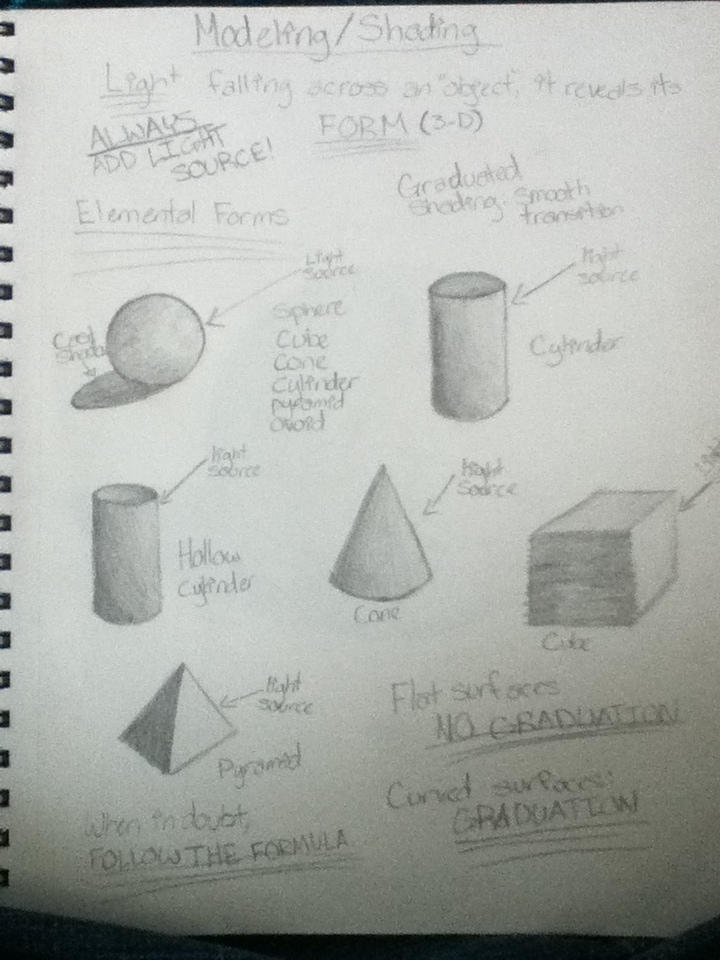 Modeling/Shading
Light falling across an "object", it reveals its
FORM (3-D)
ALWAYS
ADD LIGHT
SOURCE!
Graduated
Shading: smooth
transition
Elemental Forms
Light
Source
Sphere
Cube
Cone
Cylinder
pyramid
ovoid
Cast
Shadow
light
source
Cylinder
light
source
Hollow
Cylinder
light
source
Cone
Cube
light
source
Pyramid
Flat surfaces
NO GRADUATION
Curved surfaces:
GRADUATION
When in doubt,
FOLLOW THE FORMULA